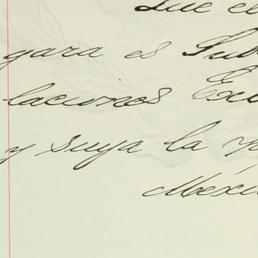 que el
gara es Sub
laciones Ext
y suya la
Méxic